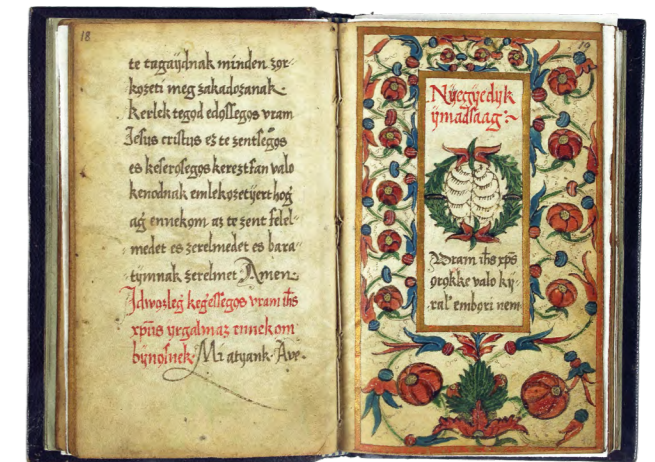 18
te tagaydnak minden zor-
kozeti meg zakadozanak
Kerlek tegod edossegos vram
Jesus cristus ez te zentsegos
es keserosegos kereztfan valo
kenodnak emlekozetijert hog
ag ennekom az te zent felel-
medet es zerelmedet es bara-
tymnak zerelmet Amen
Jdwozleg kegessegos vram ihs
xpus yrgalmaz ennekom
bynosnek Mi atyank Ave
19
Nyegyedyk
ymadsaag:~
Vram ihs xps
orokke valo ky-
ral embori nem